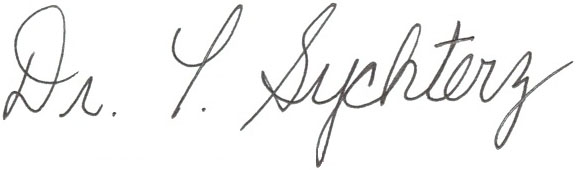 Dr. Y. Sychterz